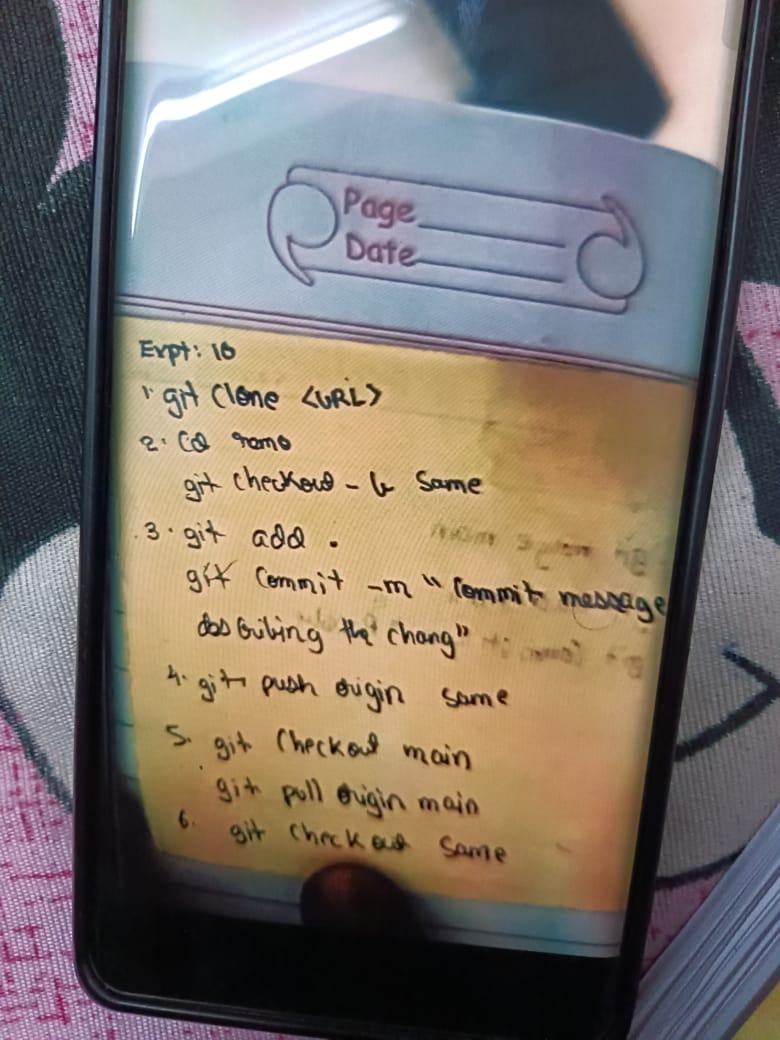 Page
Date
Expt: 10
1. git clone <URL>
2. cd name
git checkout - b same
3. git add .
git commit -m "commit message
describing the chang"
4. git push origin same
5. git checkout main
git pull origin main
6. git checkout same